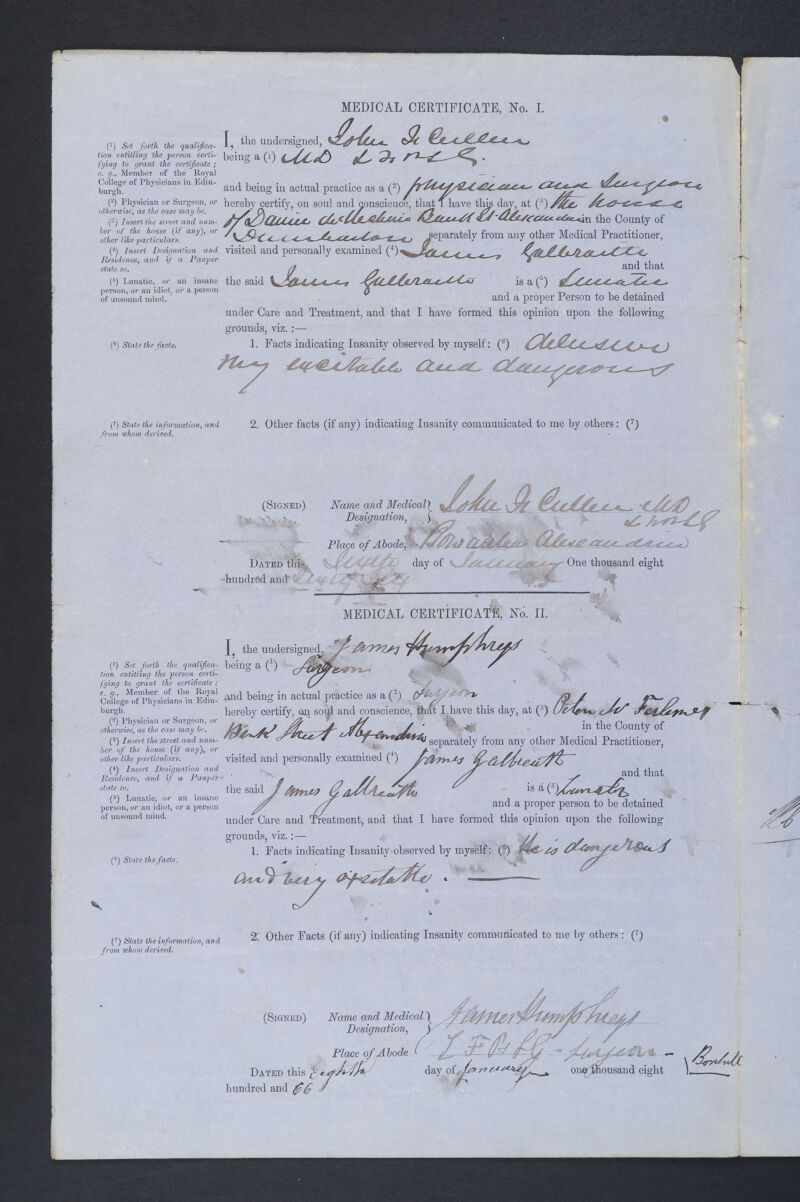 MEDICAL CERTIFICATE, No. I.
(¹) Set forth the qualifica-
tion entitling the person certi-
fying to grant the certificate;
e. g., Member of the Royal
College of Physicians in Edin-
burgh.
(²) Physician or Surgeon, or
otherwise, as the case may be.
(³) Insert the street and num-
ber of the house (if any), or
other like particulars.
(⁴) Insert Designation and
Residence, and if a Pauper
state so.
(⁵) Lunatic, or an insane
person, or an idiot, or a person
of unsound mind.
I, the undersigned, John Mc Cullen
being a (¹) MD
and being in actual practice as a (²) physician and Surgeon
hereby certify, on soul and conscience, that I have this day, at (³) the house
of Bank St Alexandria in the County of
Dumbarton separately from any other Medical Practitioner,
visited and personally examined (⁴) James Galbraith
and that
the said James Galbraith is a (⁵) Lunatic
and a proper Person to be detained
under Care and Treatment, and that I have formed this opinion upon the following
grounds, viz. :—
(⁶) State the facts.
1. Facts indicating Insanity observed by myself: (⁶) delusive
very excitable and dangerous
(⁷) State the information, and
from whom derived.
2. Other facts (if any) indicating Insanity communicated to me by others: (⁷)
(SIGNED) Name and Medical
Designation,
John Mc Cullen MD
Place of Abode, Alexandria
DATED this day of January One thousand eight
hundred and Sixty Six
MEDICAL CERTIFICATE, No. II.
(¹) Set forth the qualifica-
tion entitling the person certi-
fying to grant the certificate;
e. g., Member of the Royal
College of Physicians in Edin-
burgh.
(²) Physician or Surgeon, or
otherwise, as the case may be.
(³) Insert the street and num-
ber of the house (if any), or
other like particulars.
(⁴) Insert Designation and
Residence, and if a Pauper
state so.
(⁵) Lunatic, or an insane
person, or an idiot, or a person
of unsound mind.
I, the undersigned, James Humphreys
being a (¹) Surgeon
and being in actual practice as a (²) Surgeon
hereby certify, on soul and conscience, that I have this day, at (³)
Bank Street Alexandria in the County of
separately from any other Medical Practitioner,
visited and personally examined (⁴) James Galbreath
and that
the said James Galbreath is a (⁵) Lunatic
and a proper person to be detained
under Care and Treatment, and that I have formed this opinion upon the following
grounds, viz. :—
(⁶) State the facts.
1. Facts indicating Insanity observed by myself: (⁶) He is dangerous
and very excitable.
(⁷) State the information, and
from whom derived.
2. Other Facts (if any) indicating Insanity communicated to me by others: (⁷)
(SIGNED) Name and Medical
Designation,
James Humphreys
Place of Abode L F P & S G - Surgeon - Bonhill
DATED this Eighth day of January one thousand eight
hundred and 66